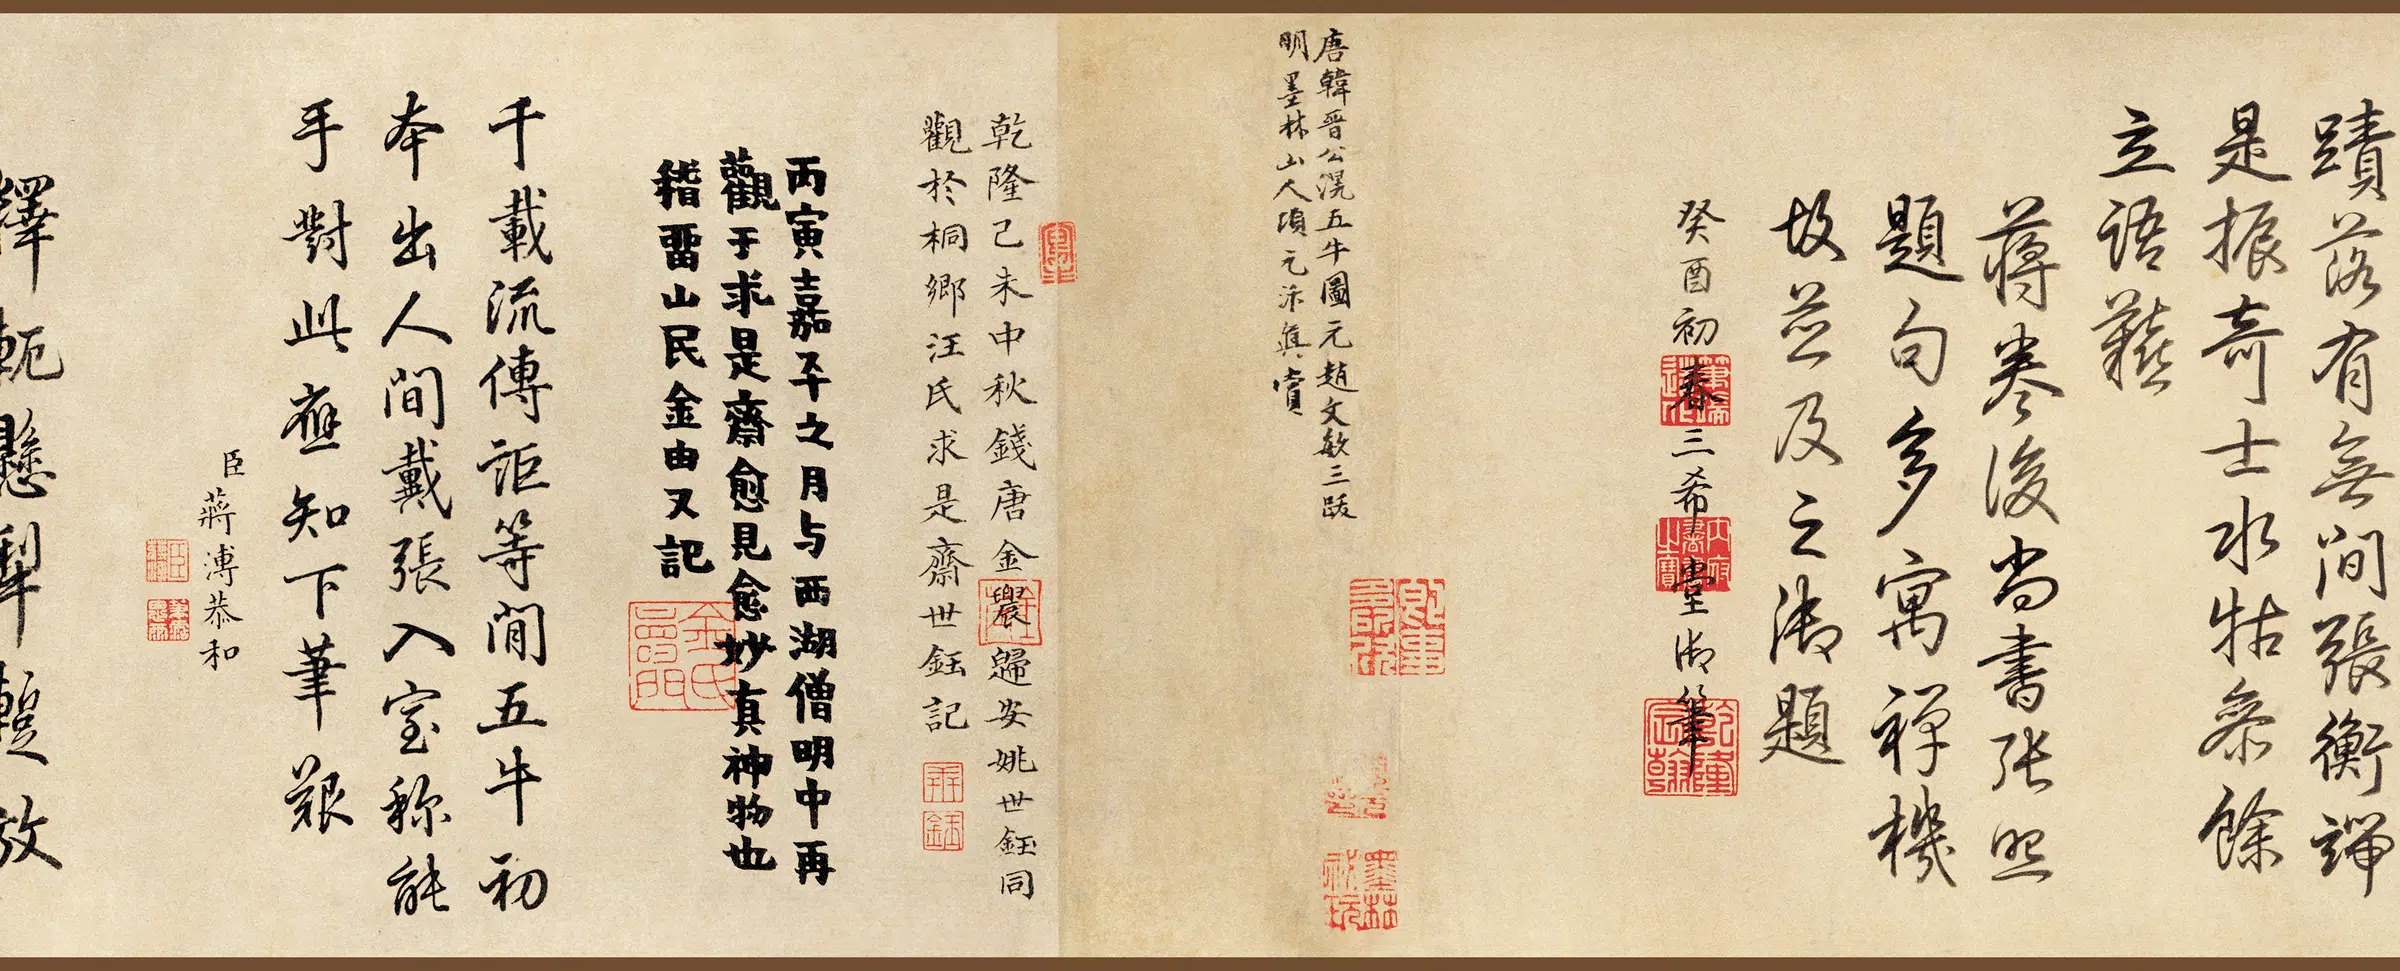 蹟落有無間張衡端
是振奇士水牯參餘
立語薿
蔣卷後尚書張照
題句多寓禪機
故並及之御題
癸酉初春三希堂御筆
唐韓晉公滉五牛圖元趙文敏三跋
明墨林山人項元汴真賞
乾隆己未中秋錢唐金農歸安姚世鈺同
觀於桐鄉汪氏求是齋世鈺記
丙寅嘉平之月与西湖僧明中再
觀于求是齋愈見愈妙真神物也
稽畱山民金由又記
千載流傳詎等閒五牛初
本出人間戴張入室称能
手對此應知下筆艱
臣蔣溥恭和
釋軛懸犁蹔放